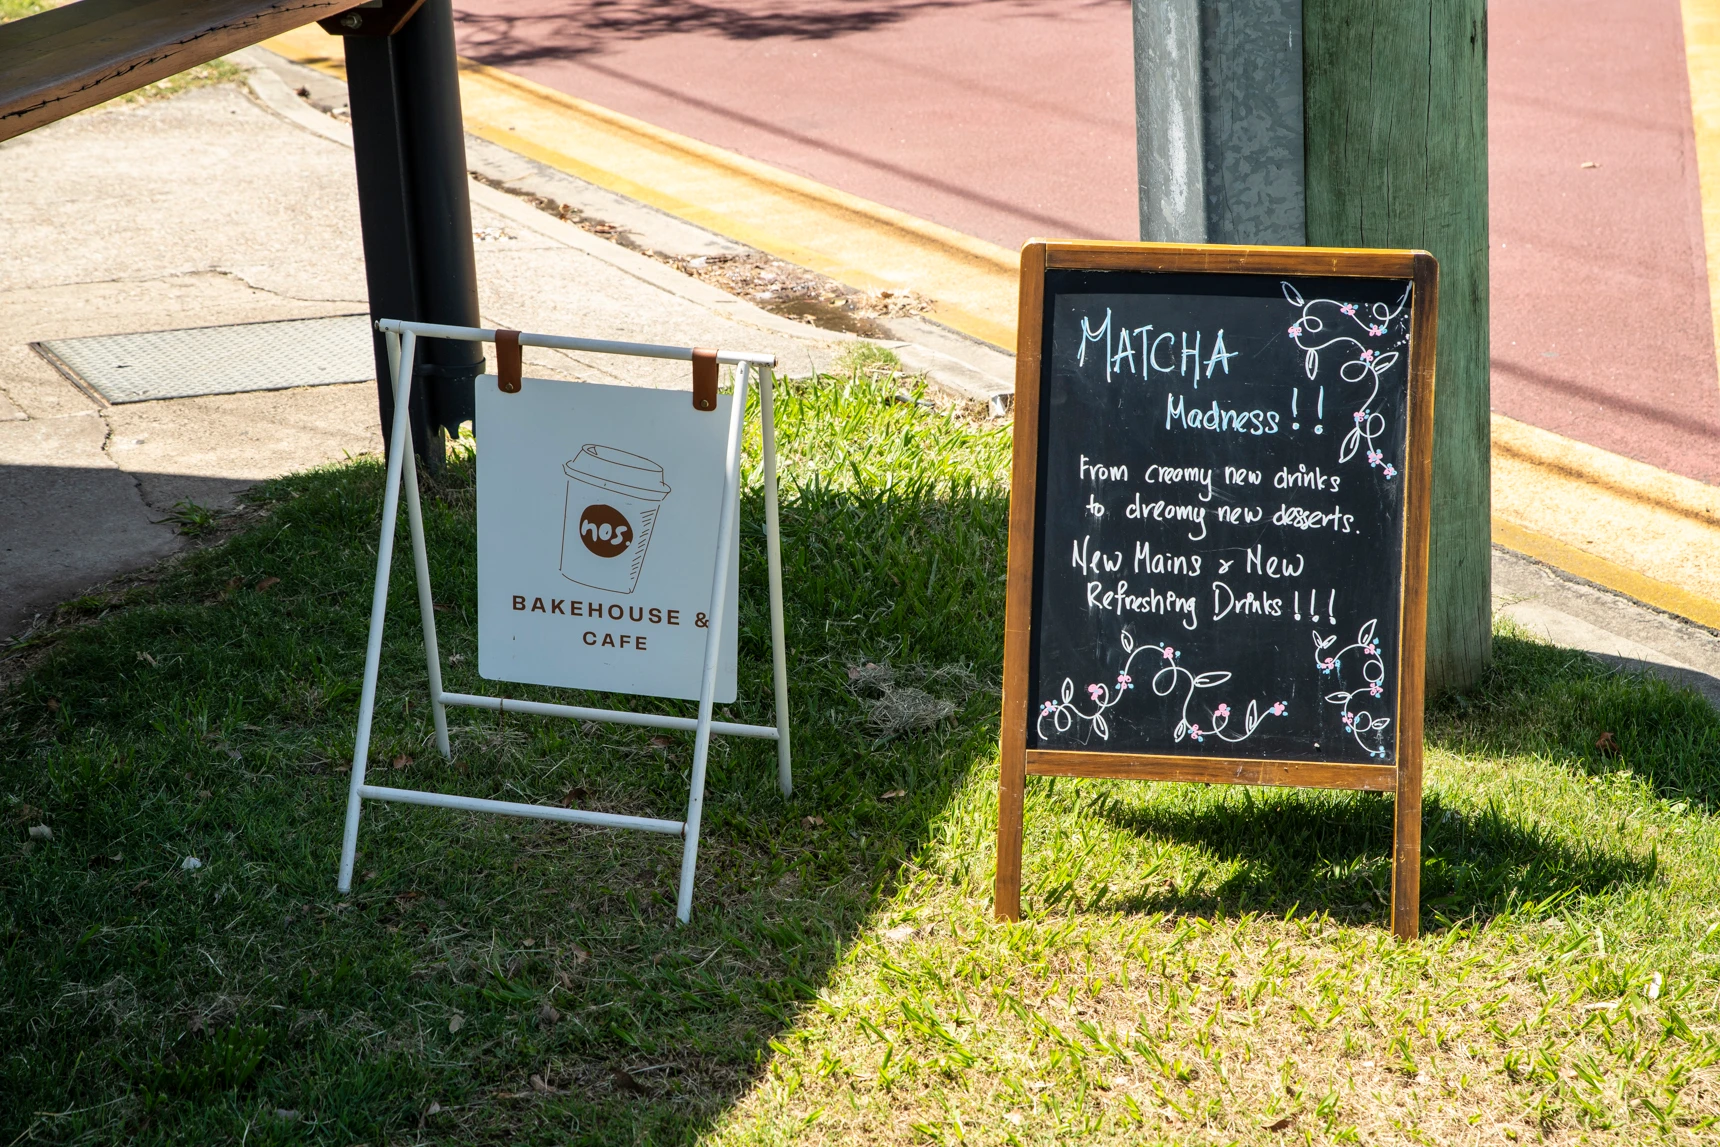 nos.
BAKEHOUSE &
CAFE
MATCHA
Madness!!
From creamy new drinks
to dreamy new desserts.
New Mains & New
Refreshing Drinks!!!